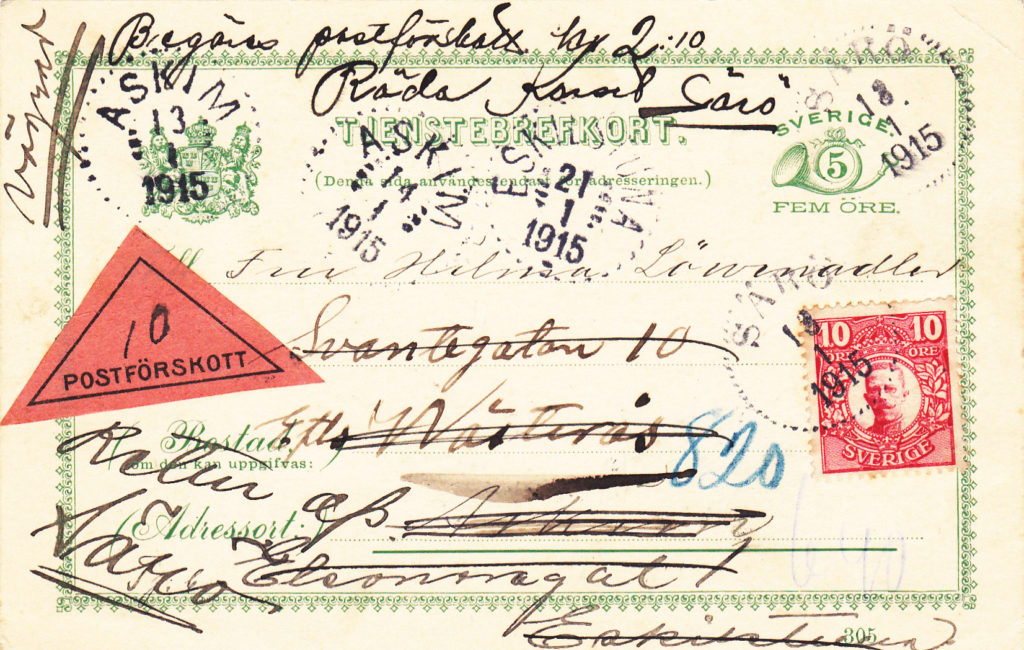 Begäres postförskott kr 2:10
Räda Särö
vägrad
TJENSTEBREFKORT.
(Denna sida användes endast för adresseringen.)
SVERIGE.
5
FEM ÖRE.
ASKIM
13
1
1915
ASKIM
14
1
1915
ESKILSTUNA
21
1
1915
SÄRÖ
18
1
1915
Till Fru Hilma Löwenadler
SÄRÖ
18
1
1915
10 10
ÖRE ÖRE
SVERIGE
10
POSTFÖRSKOTT
Svantegatan 10
Västerås
Bostad
(om den kan uppgifvas:
820
Retur
(Adressort:)
Askim
Särö
Eskilstuna
305